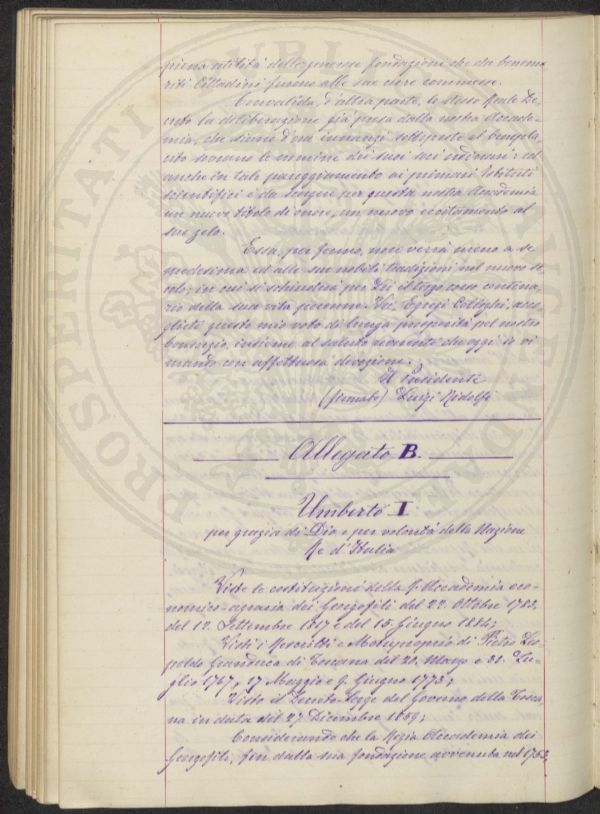 piena utilità delle generose fondazioni che da beneme
riti Cittadini furono alle sue cure commesse.
Convalida, d'altra parte, lo stesso Reale De-
creto la deliberazione già presa dalla nostra Accade-
mia, che siano d'ora innanzi sottoposte al beneplà
cito sovrano le nomine dei suoi soci ordinari: ed
anche in tale pareggiamento ai primari Istituti
scientifici è da scorgere per questa nostra Accademia
un nuovo titolo di onore, un nuovo eccitamento al
suo zelo.
Essa, per fermo, non verrà meno a se
medesima ed alle sue nobili tradizioni nel nuovo se
colo, in cui si schiuderà per Lei il terzo corso centena
rio della sua vita feconda. Voi, Egregi Colleghi, acco
gliete questo mio voto di lunga prosperità pel nostro
Consorzio, insieme al saluto riverente che oggi io vi
mando con affettuosa devozione.
Il Presidente
(firmato) Luigi Ridolfi
Allegato B.
Umberto I
per grazia di Dio e per volontà della Nazione
Re d'Italia
Viste le costituzioni della R. Accademia eco-
nomico-agraria dei Georgofili del 22. Ottobre 1783,
del 12. Settembre 1817 e del 15. Giugno 1884;
Visti i Rescritti e Motupropri di Pietro Leo-
poldo Granduca di Toscana del 20. Marzo e 31. Lu-
glio 1767, 17 Maggio e 9. Giugno 1773;
Visto il Decreto-Legge del Governo della Tosca
na in data del 27 Dicembre 1859;
Considerando che la Regia Accademia dei
Georgofili, fin dalla sua fondazione avvenuta nel 1753,
PROSPERITATI PUBLICAE AUGENDAE